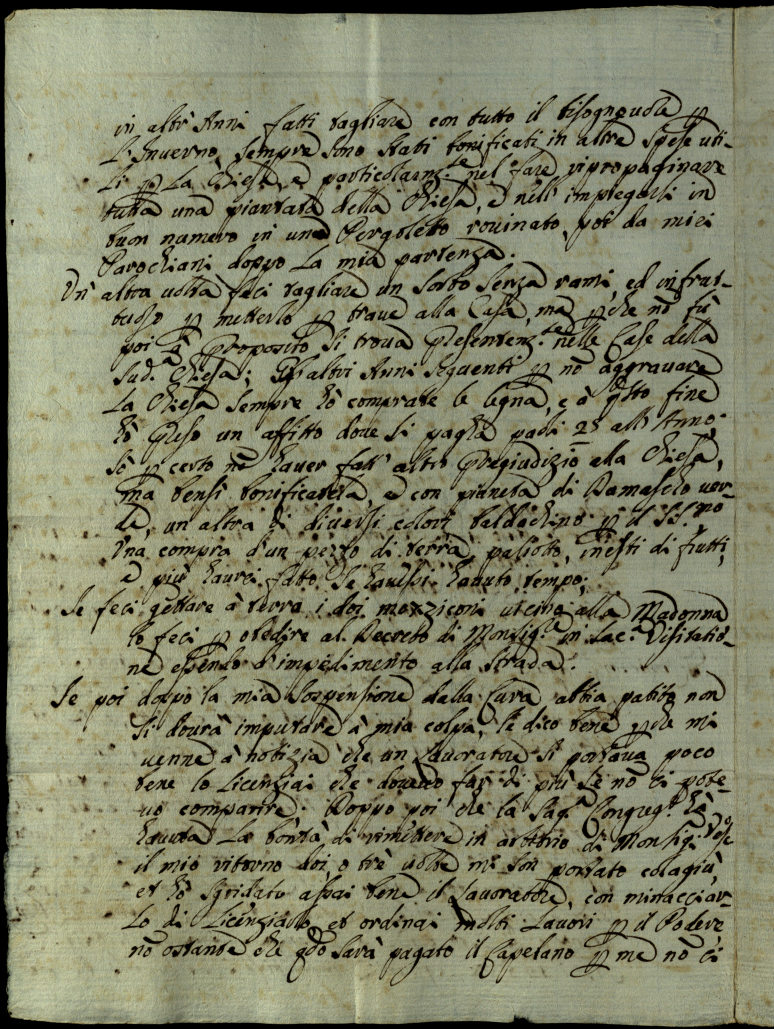 in altri Anni fatti tagliare con tutto il bisogneuole p
L'Inuerno, sempre sono stati bonificati in altre spese uti-
li p La Chiesa, e particolarm.te nel fare ripropaginare
tutta una piantata della Chiesa, e nell'impiegarsi in
buon numero in una Pergoletto rouinato poi da miei
Parochiani doppo La mia partenza.
Un' altra uolta feci tagliare un Sorbo senza rami, ed infrut-
tuoso p metterlo p traue alla Casa, ma p che nō fù
poi à proposito si troua presentem.te nelle Case della
sud.a Chiesa; Gl'altri Anni seguenti p nō aggrauare
La Chiesa sempre hò comprate le legna, e à q̃sto fine
hò preso un affitto doue si paga padi 25 all'Anno.
sò p certo nō hauer fatt' altro pregiudizio alla Chiesa,
ma bensì bonificatela, e con pianeta di Damascho uer-
de, un'altra di diuersi colori baldachino p il SS.mo
Una compra d'un pezzo di terra, paliotto, inesti di frutti,
e più haurei fatto se hauessi hauuto tempo;
Se feci gettare à terra i doi morziconi uicino alla Madonna
lo feci p obedire al Decreto di Monsig.r in Sac.a Visitatio-
ne essendo d'impedimento alla strada.
Se poi doppo la mia sospensione dalla Cura abbia patito non
si dourà imputare à mia colpa, le dico bene p che mi
uenne à notizia che un Lauoratore si portaua poco
bene lo Licenziai che doueuo far di più se nō ci pote-
uo comparire. Doppo poi che la Sag.a Congreg.e hà
hauuta La bontà di rimettere in arbitrio di Monsig.r Vesc.o
il mio ritorno doi, o trè uolte mi son portato colagiù,
et hò sgridato assai bene il Lauoratore, con minacciar-
lo di Licenziarlo, et ordinai molti Lauori p il Podere
nō ostante che qdo sarà pagato il Capelano p me nō ci